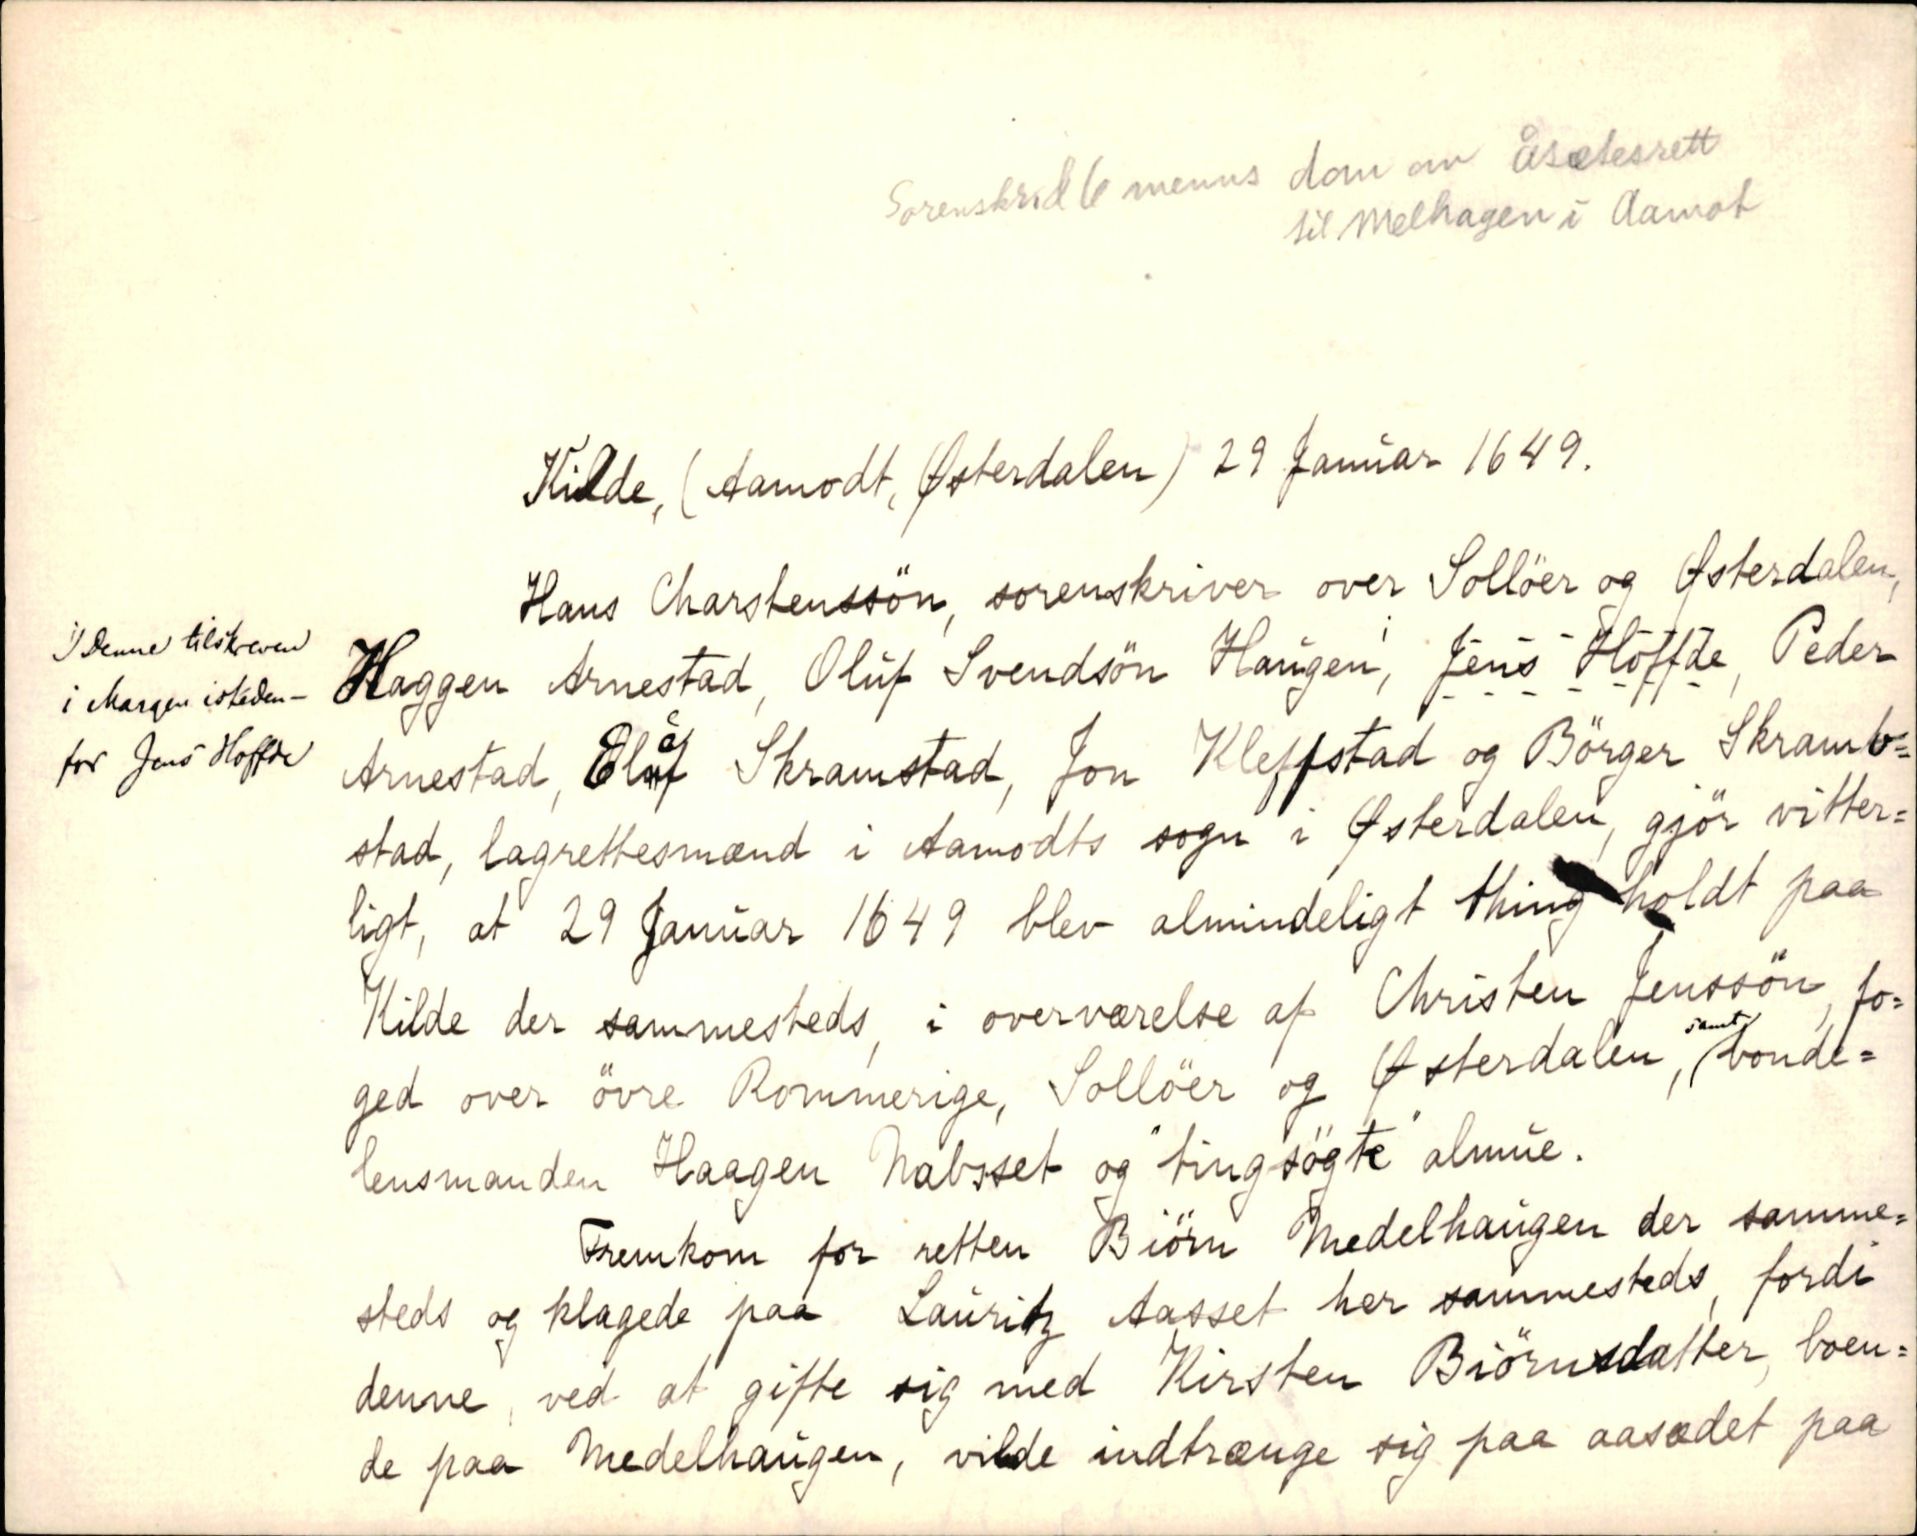 Sorenskr. d 6 menns dom om åsetesrett
til Melhagen i Aamot
Kilde, (Aamodt, Østerdalen) 29 Januar 1649.
Hans Charstenssön, sorenskriver over Sollöer og Østerdalen,
Haggen Arnestad, Oluf Svendsön Haugen¹, Jens Hoffde, Peder
Arnestad, Eluf Skramstad, Jon Kleffstad og Börger Skramb=
stad, lagrettesmænd i Aamodts sogn i Østerdalen, gjör vitter=
ligt, at 29 Januar 1649 blev almindeligt thing holdt paa
Kilde der sammesteds, i overværelse af Christen Jenssön, fo=
ged over övre Rommerige, Sollöer og Østerdalen, samt bonde=
lensmanden Haagen Nabsset og "tingsögte" almue.
Fremkom for retten Biörn Medelhaugen der samme=
steds og klagede paa Lauritz Aasset her sammesteds, fordi
denne, ved at gifte sig med Kirsten Biörnsdatter, boen=
de paa Medelhaugen, vilde indtrænge sig paa aasædet paa
1) Denne tilskreven
i Margen isteden-
for Jens Hoffde